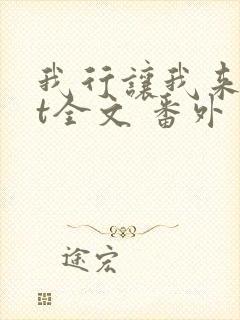 我行讓我来
t全文 番外
途宏